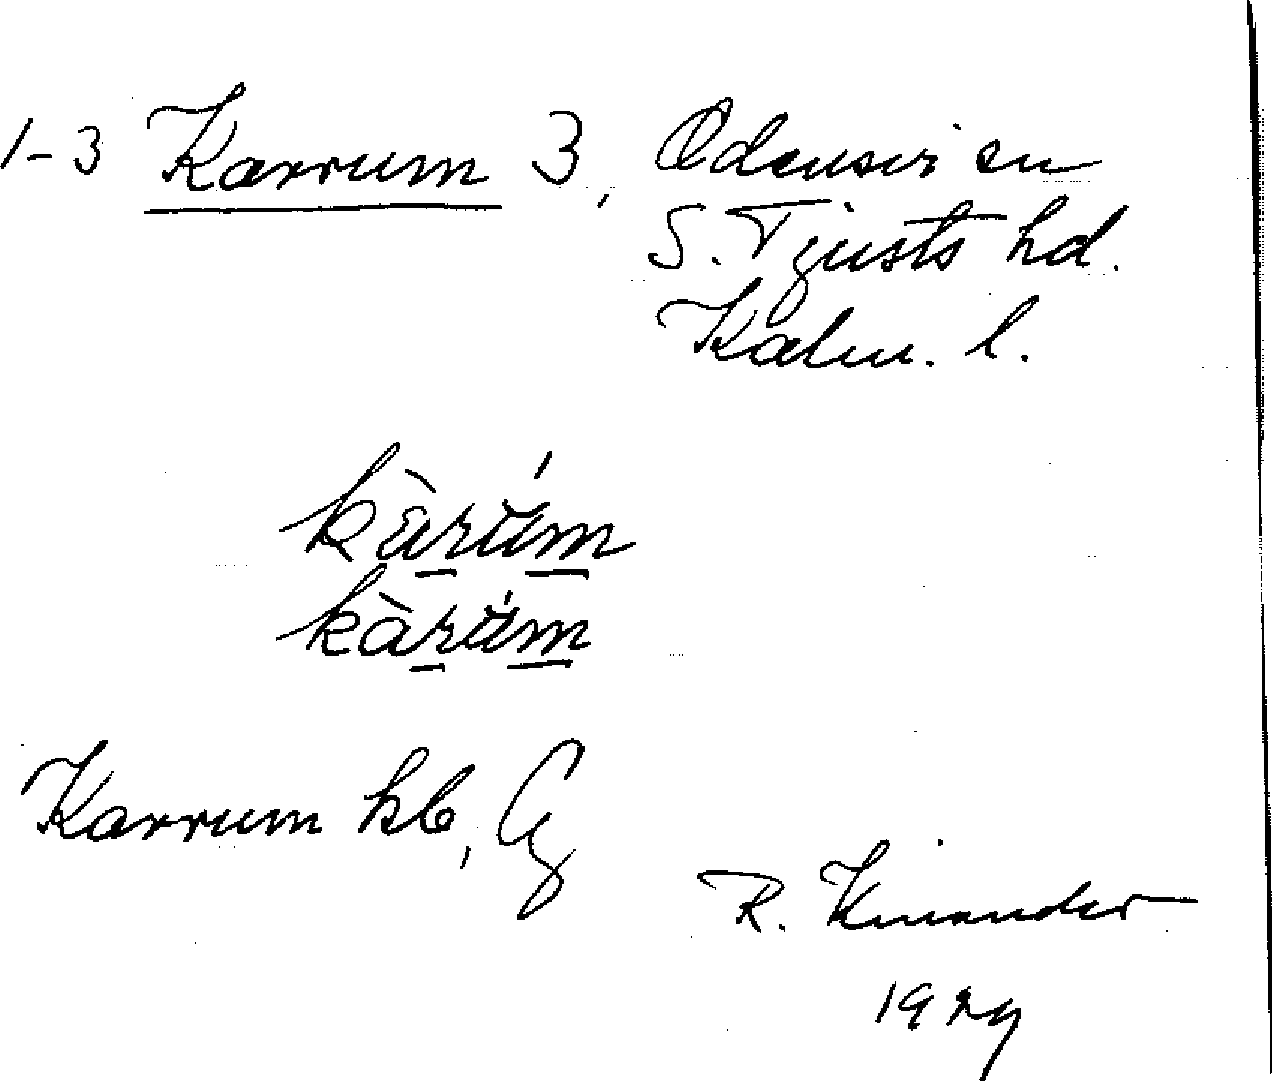 1-3 Karrum 3, Odensvi sn
S. Tjusts hd.
Kalm. l.
kàrúm
kàrúm
Karrum hb, Cg
R. Kinander
1929